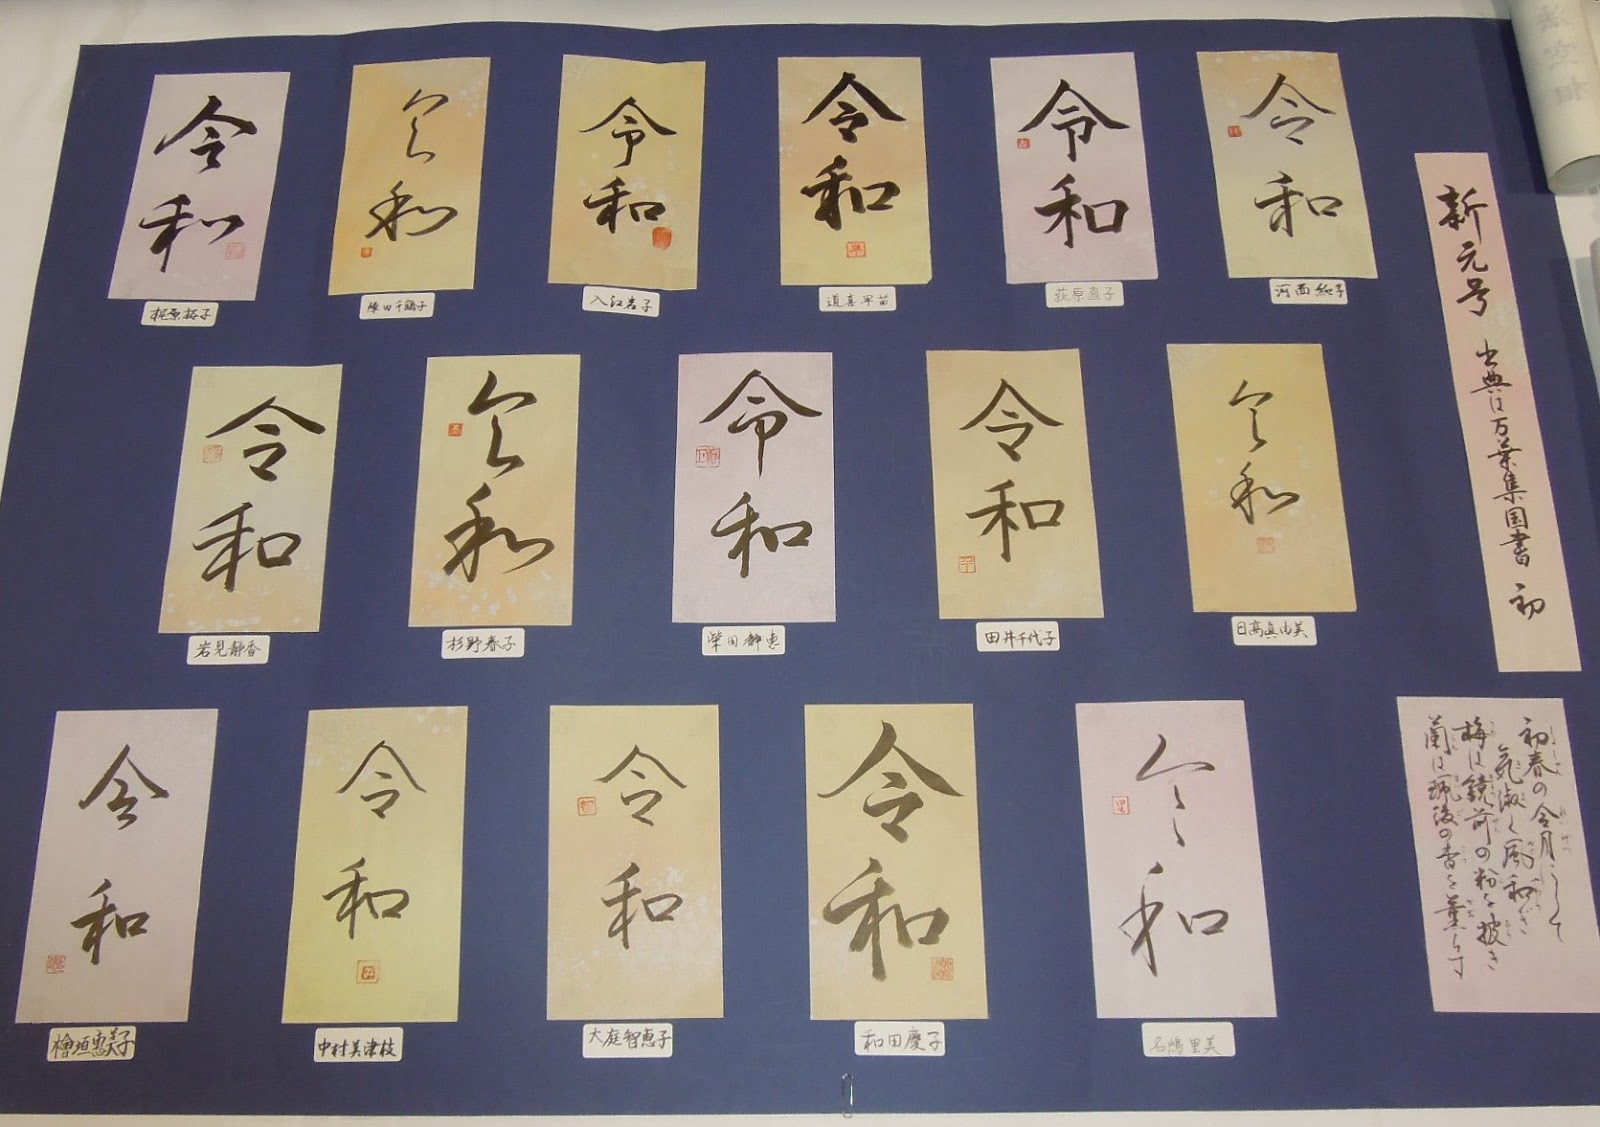 新元号 出典は万葉集国書 初
初春の令月にして
気淑く風和ぎ
梅は鏡前の粉を披き
蘭は珮後の香を薫らす
令和
河西和子
令和
荻原直子
令和
道喜早苗
令和
入江岩子
令和
陣田千鶴子
令和
梶原裕子
令和
日高眞由美
令和
田井千代子
令和
柴田靜恵
令和
杉野春子
令和
岩見静香
令和
名嶋里美
令和
和田慶子
令和
大庭智恵子
令和
中村美津枝
令和
檜垣恵美子